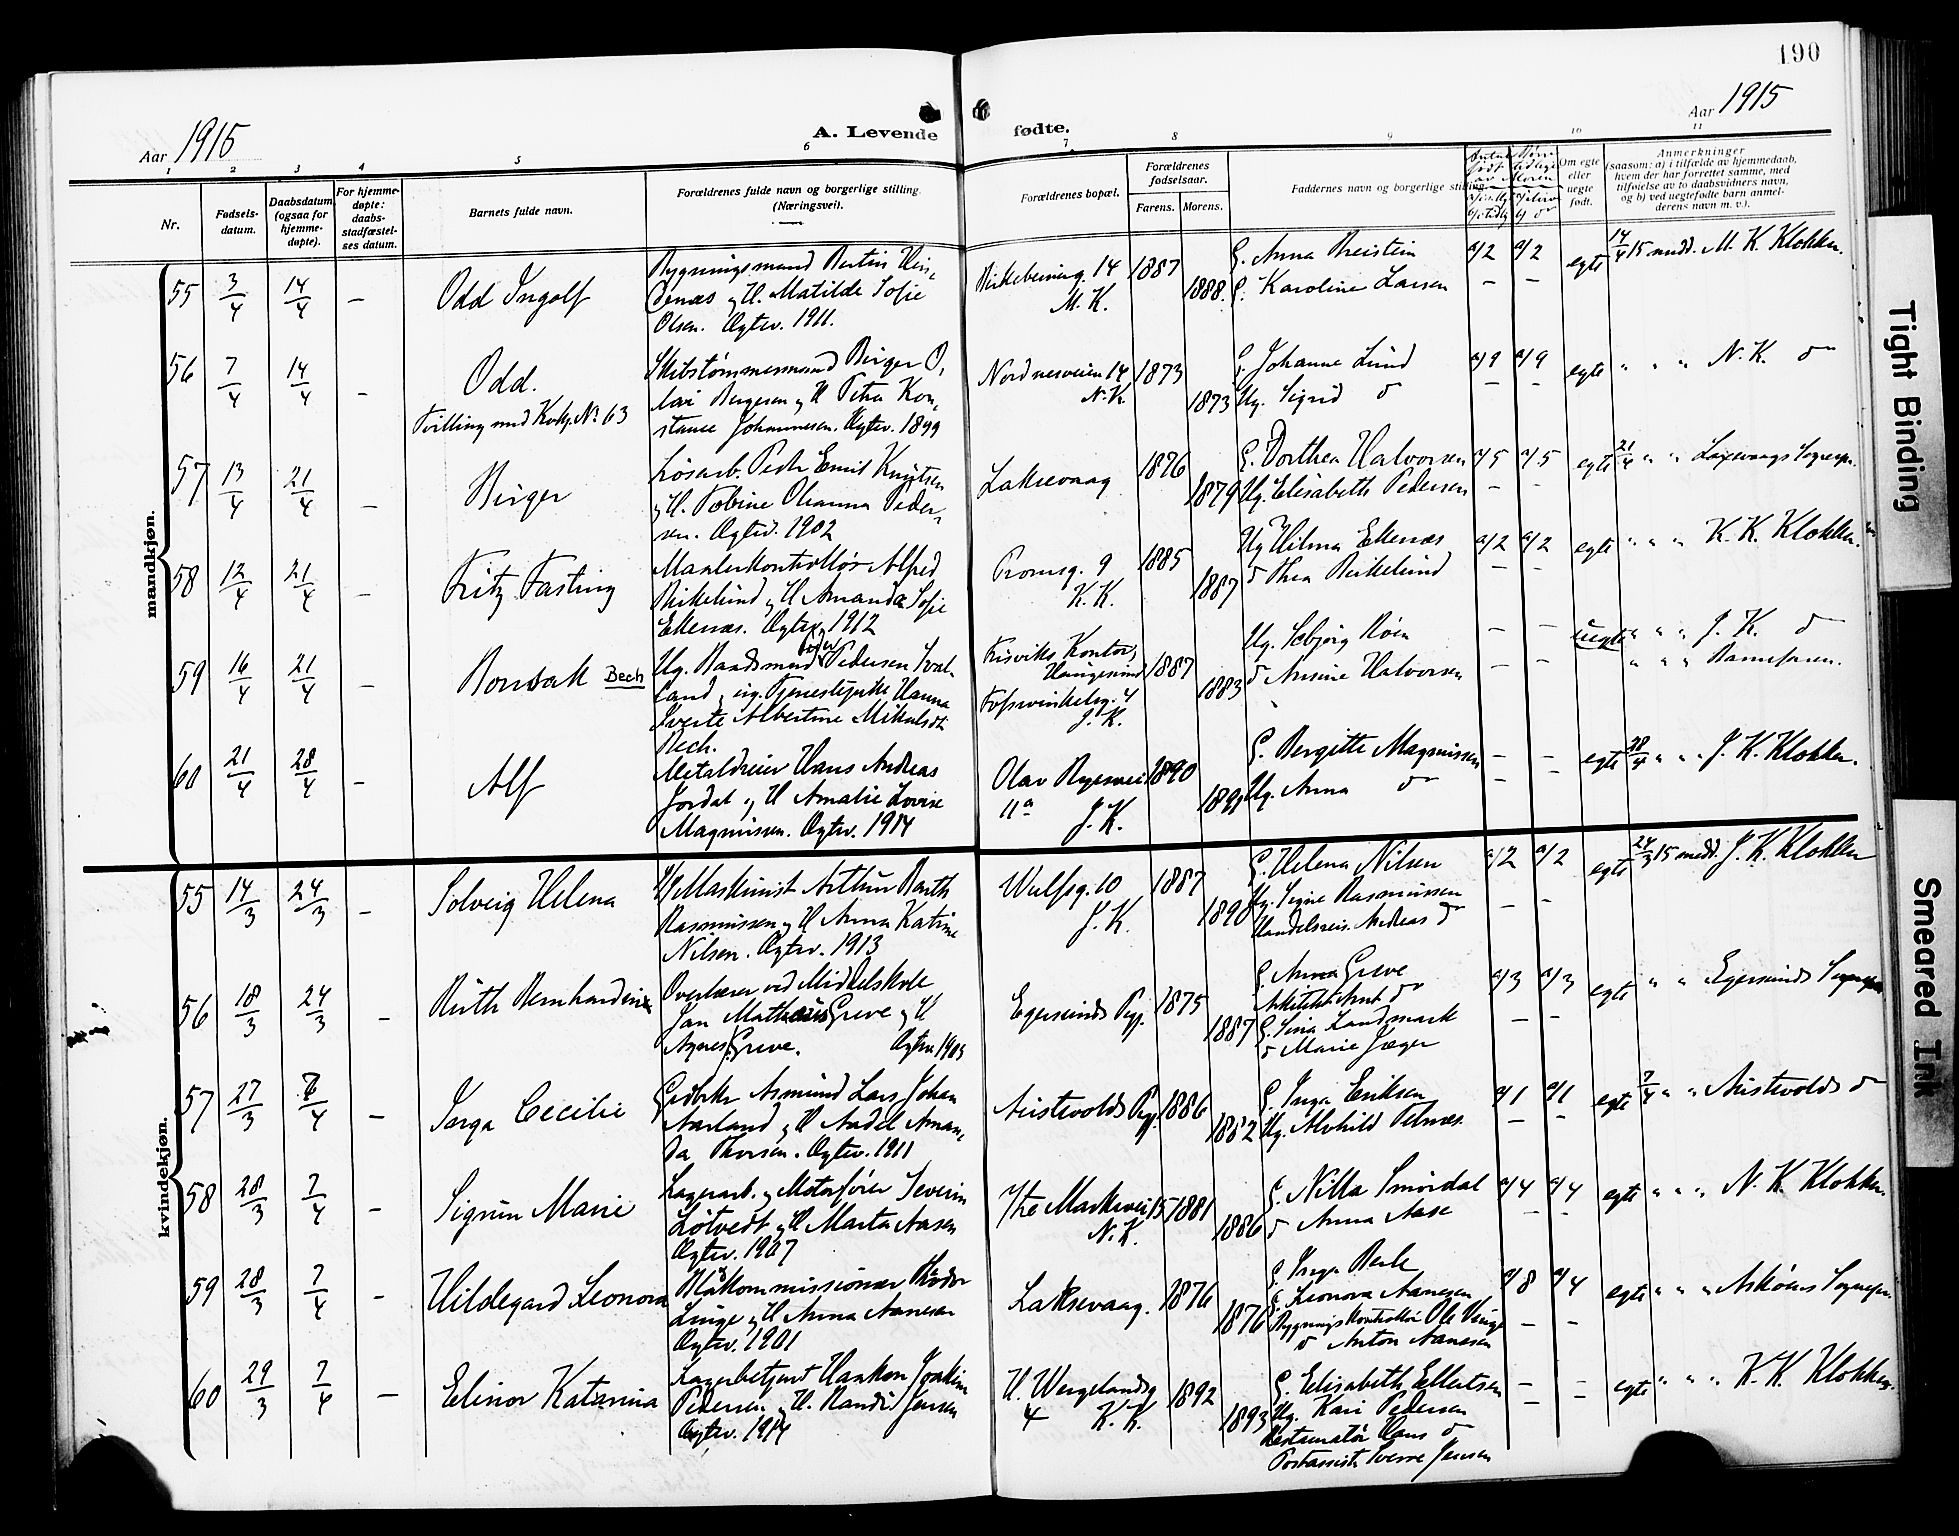 190
Aar 1915
A. Levende
fødte.
Aar 1915
1 2 3 4 5 6 7 8 9 10 11
Nr.
Fødsels-
datum.
Daabsdatum
(ogsaa for
hjemme-
døpte).
For hjemme-
døpte:
daabs-
stadfæstel-
ses datum.
Barnets fulde navn.
Forældrenes fulde navn og borgerlige stilling.
(Næringsvei).
Forældrenes bopæl.
Forældrenes
fødselsaar.
Farens. Morens.
Faddernes navn og borgerlige stilling
Om egte
eller
uegte
født.
Anmerkninger
(saasom: a) i tilfælde av hjemmedaab,
hvem der har forrettet samme, med
tilføielse av to daabsvidners navn,
og b) ved uegtefødte barn anmel-
derens navn m. v.).
mandkjøn.
55 3/4 14/4 – Odd Ingolf
Bygningsmand Bertin Hin-
denæs og H. Matilde Sofie
Olsen. Egtev. 1911.
Birkebeinerg. 14
M. K.
1887
1888
G. Anna Breistein
G. Karoline Larsen
a/2 a/2
– –
egte 14/4 15 medd. M. K. Klokker.
56 7/4 14/4 – Odd.
Tvilling med Kvkj. No. 63
Skibstømmermand Birger O-
lai Bergesen og H Petra Kon-
stance Johannesen. Egtev. 1899
Nordnesveien 14
N. K.
1873
1873
G. Johanne Lund
Ug. Sigrid do
a/9 a/9
– –
egte " " " N. K. do
57 13/4 21/4 – Birger
Løsarb. Peder Emil Knutsen
og H. Tobine Oleanna Peder-
sen. Egtev. 1902
Laksevaag
1876
1879
G. Dorthea Halvorsen
Ug. Elisabeth Pedersen
a/5 a/5
– –
egte 21/4 " " Laxevaags Sognepr.
58 12/4 21/4 – Fritz Fasting
Maalerkontrollør Alfred
Birkelund og H Amanda Sofie
Ellenæs. Egtev. 1912
Tromsg. 9
K. K.
1885
1887
Ug Hilma Ellenæs
do Thea Birkelund
a/2 a/2
– –
egte " " " K. K. Klokker.
59 16/4 21/4 – Bonsak Bech
Ug. Baadsmand Pedersen Sval-
land og ug. Tjenestepike Hanna
Sverte Albertine Mikalsdt
Bech.
Risviks Kontor,
Haugesund
Fosswinkelsg. 4
J. K.
1887
1883
Ug. Solbjørg Røen
do Ansine Halvorsen
– –
– –
uegte " " " J. K. do
" " " Barnefaren.
60 21/4 28/4 – Alf
Metaldreier Hans Andreas
Jordal og H Amalie Lovise
Magnussen. Egtev. 1914
Olav Ryesvei
11a J. K.
1890
G. Bergitte Magnussen
Ug. Anna do
– –
– –
egte 28/4 " " J. K. Klokker.
kvindekjøn.
55 14/3 24/3 – Solveig Helena
Maskinist Arthur Barth
Rasmussen og H Anna Katrine
Nilsen. Egtev. 1913
Wulfsg. 10
J. K.
1887
1890
G. Helena Nilsen
Ug. Signe Rasmussen
Handelsreis. Andreas do
a/2 a/2
– –
egte 24/3 15 medd. J. K. Klokker
56 18/3 24/3 – Ruth Bernhardine
Overlærer ved Middelskole
Jan Mathæus Greve og H
Agnes Greve. Egtev. 1905
Egersunds Pgj.
1875
1887
G. Anna Greve
Arkitekt Arnt do
G. Sina Landmark
do Marie Jæger
a/3 a/3
– –
egte " " Egersunds Sognepr.
57 27/3 7/4 – Inga Cecilie
Gjedbrker Asmund Lars Johan
Aarland og H Aadel Aman-
da Thorsen. Egtev. 1911
Austevolds Pgj.
1886
1882
G. Inga Eriksen
Ug. Alvhild Pelnæs.
a/1 a/1
– –
egte 7/4 " " Austevolds do
58 28/3 7/4 – Sigrun Marie
Lagerarb. og Motorfører Severin
Løtvedt og H Marta Aasen
Egtev. 1907
Ytre Markevei 15
N. K.
1881
1886
G. Nilla Smørdal
do Anna Aase
a/4 a/4
– –
egte " " " N. K. Klokker.
59 28/3 7/4 – Hildegard Leonora
Linge og H Anna Aanesen
Egtev. 1901
Laksevaag.
1876
1876
G. Inga Berle
G. Leonora Aanesen
Bygningskontrollør Ole Linge
do Anton Aanesen
a/8 a/4
– –
egte " " " Askøens Sognepr.
60 29/3 7/4 – Elinor Katarina
Lagerbetjent Haakon Joakim
Pedersen og H. Randi Jensen
Egtev. 1914
H. Wergelandsg
4 K. K.
1892
1893
G. Elisabeth Ellertsen
Ug. Kari Pedersen
Restauratør Hans do
Postassist. Sverre Jensen
– –
– –
egte " " " K. K. Klokker.
Tight Binding
Smeared Ink